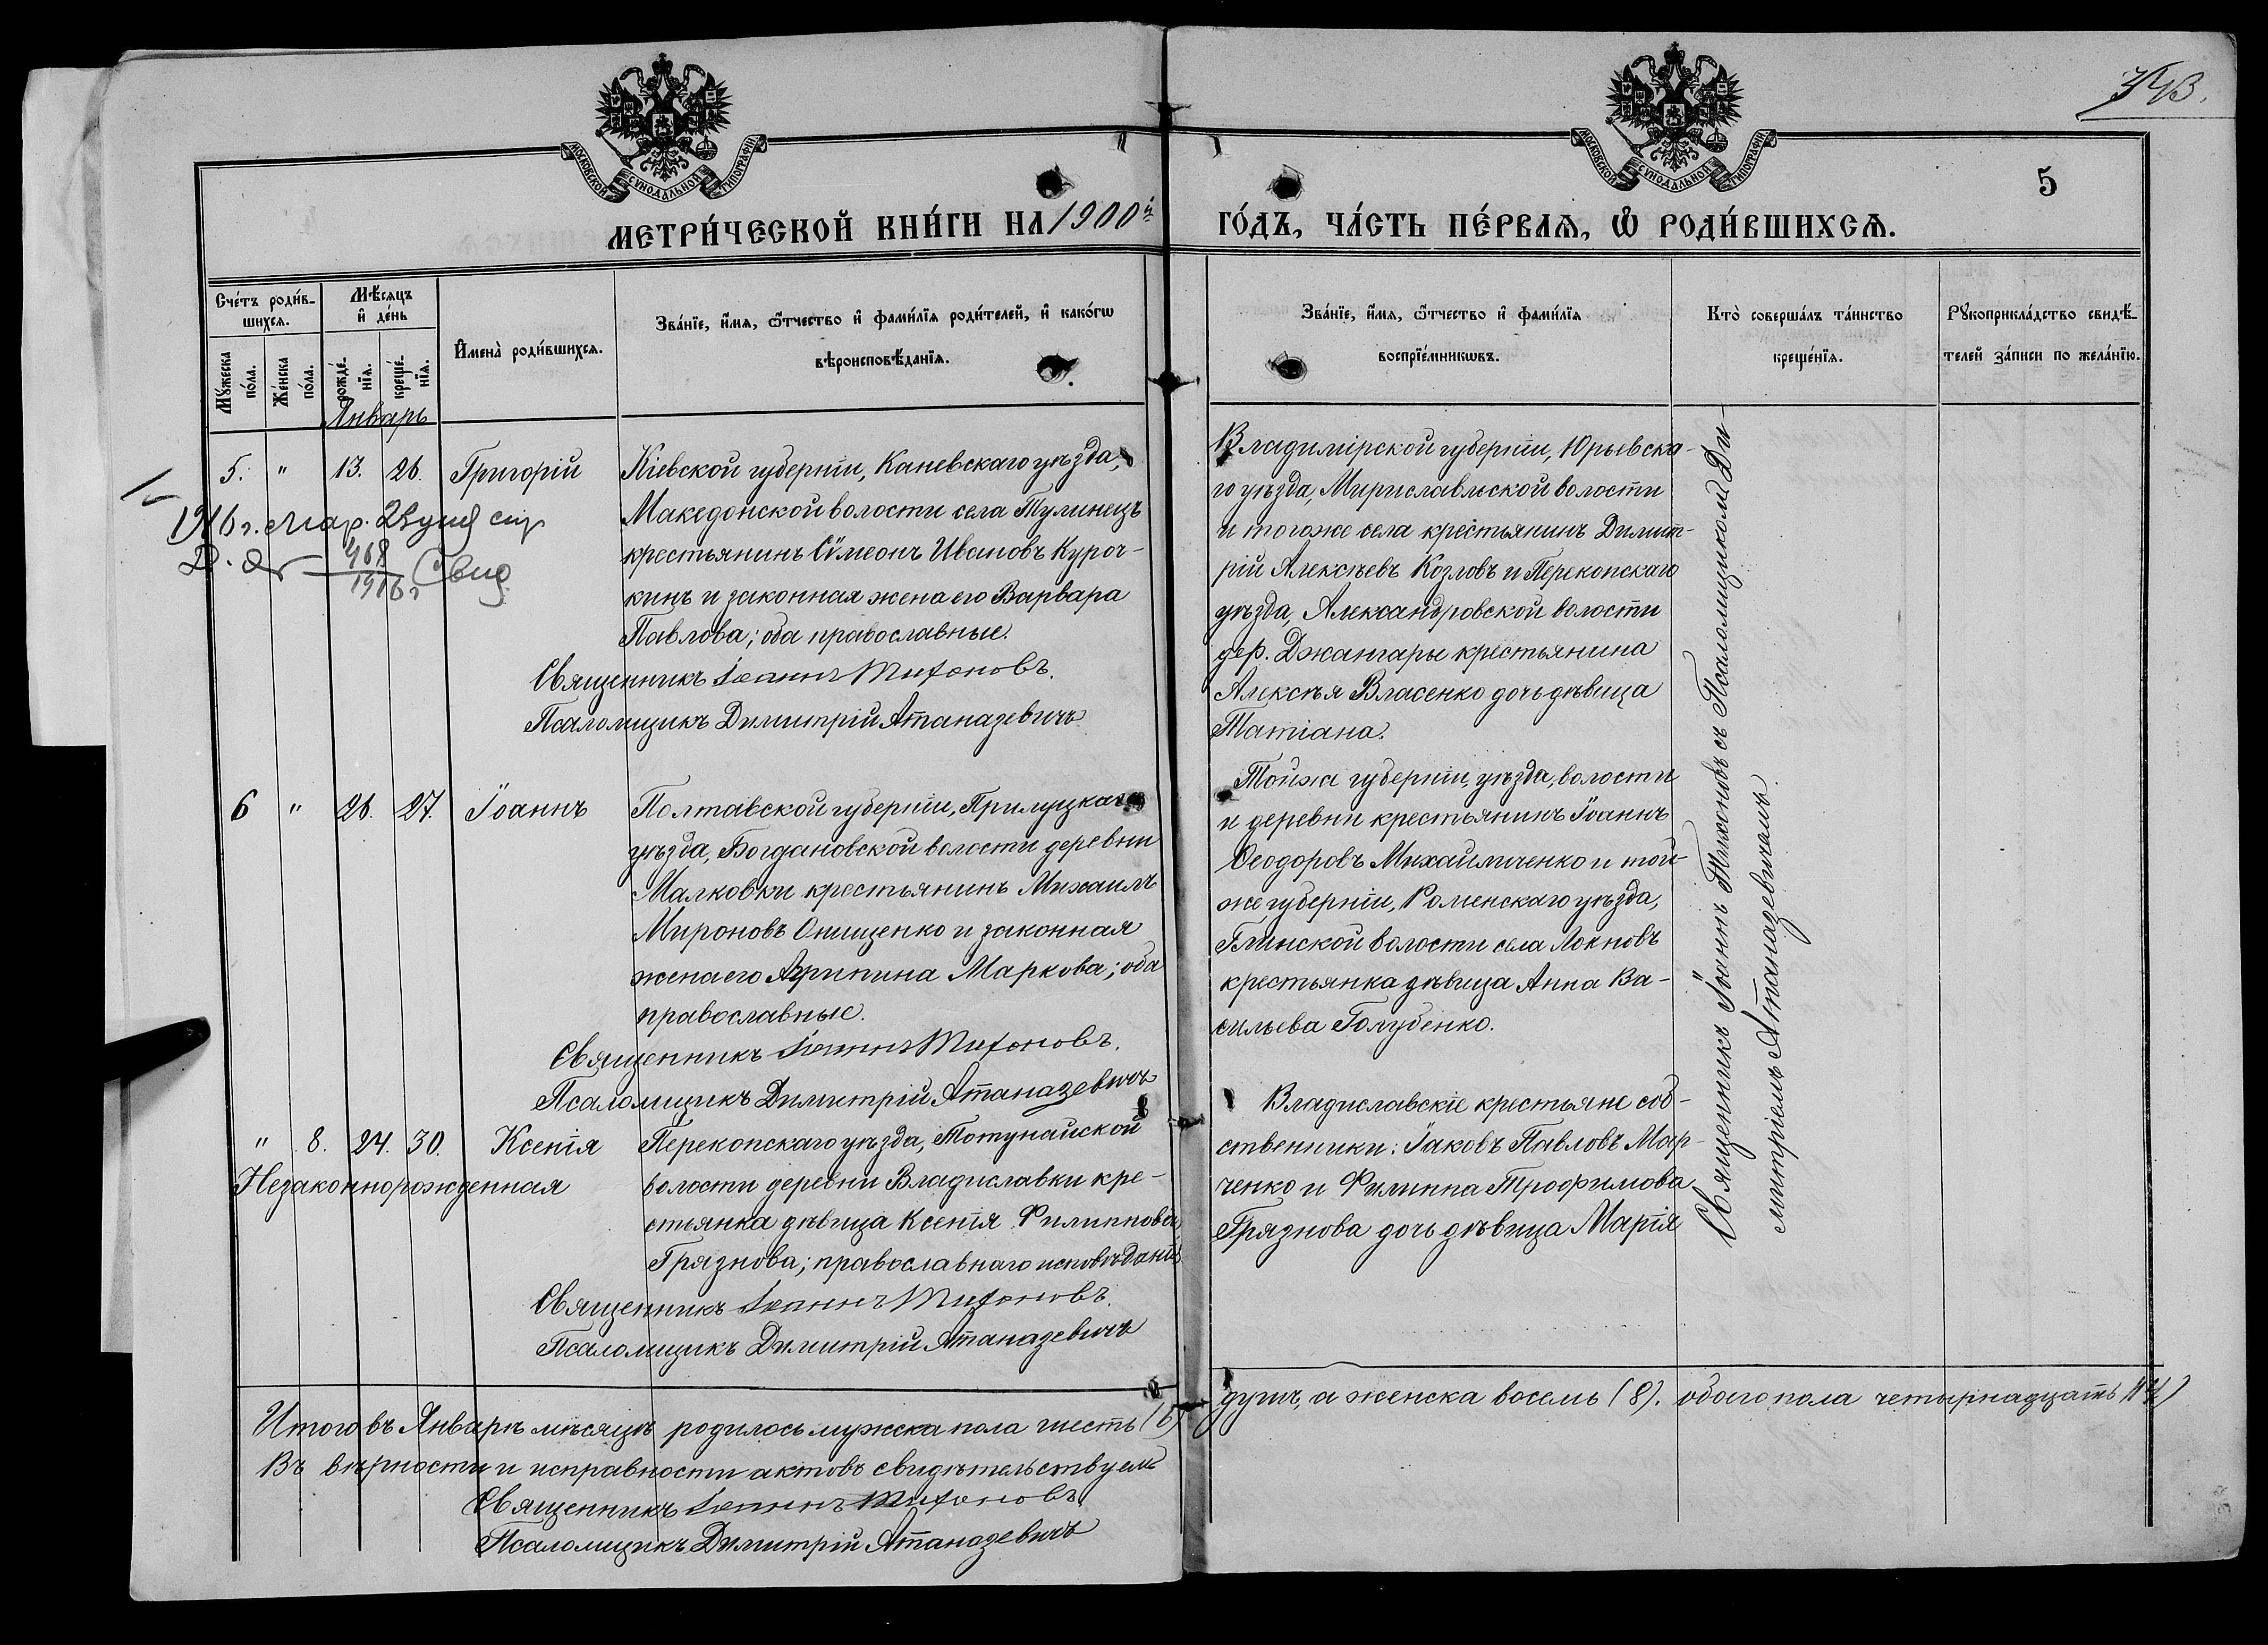 343.
5
МОСКОВСКОЙ СУНОДАЛЬНОЙ ТИПОГРАФІИ
МОСКОВСКОЙ СУНОДАЛЬНОЙ ТИПОГРАФІИ
МЕТРИ́ЧЕСКОЙ КНИ́ГИ НА 1900й ГО́ДЪ, ЧА́СТЬ ПЕ́РВАЯ, Ѡ РОДИ́ВШИХСЯ.
Сче́тъ роди́в-
шихся.
Мѣ́сяцъ
и҆ де́нь
Мꙋжеска по́ла.
Же́нска по́ла.
рожде́-
нїя.
креще́-
нїя.
И҆мена̀ роди́вшихся.
Зва́нїе, и҆́мя, ѻ҆́тчество и҆ фами́лїя роди́телей, и҆ како́гѡ
вѣроисповѣ́данїя.
Зва́нїе, и҆́мя, ѻ҆́тчество и҆ фами́лїя
воспрїе́мникѡвъ.
Кто̀ соверша́лъ та́инство
креще́нїя.
Рꙋкоприкла́дство свидѣ́-
телей за́писи по жела́нїю.
Январь
5. " 13. 26. Григорій
Кіевской губерніи, Каневскаго уѣзда,
Македонской волости села Тулинецъ
крестьянинъ Сѵмеонъ Ивановъ Куроч-
кинъ и законная жена его Варвара
Павлова; оба православные.
Священникъ Іоаннъ Тихоновъ.
Псаломщикъ Димитрій Атаназевичъ
1916 г. Мар. 25
468
1916 г Свид
Владимірской губерніи, Юрьевска-
го уѣзда, Мириславльской волости
и того же села крестьянинъ Димит-
рій Алексѣевъ Козловъ и Перекопскаго
уѣзда, Александровской волости
дер. Джангары крестьянина
Алексѣя Власенко дочь дѣвица
Татіана.
6 " 26. 27. Іоаннъ
Полтавской губерніи, Прилуцкаго
уѣзда, Богдановской волости деревни
Малковки крестьянинъ Михаилъ
Мироновъ Онищенко и законная
жена его Агрипина Маркова; оба
православные.
Священникъ Іоаннъ Тихоновъ.
Псаломщикъ Димитрій Атаназевичъ
Той же губерніи, уѣзда, волости
и деревни крестьянинъ Іоаннъ
Ѳеодоровъ Михайличенко и той-
же губерніи, Роменскаго уѣзда,
Глинской волости села Локновъ
крестьянка дѣвица Анна Ва-
сильева Голубенко.
" 8. 24. 30. Ксенія
Незаконнорожденная
Перекопскаго уѣзда, Тотунайской
волости деревни Владиславки кре-
стьянка дѣвица Ксенія Филиппова
Грязнова; православнаго исповѣданія
Священникъ Іоаннъ Тихоновъ.
Псаломщикъ Димитрій Атаназевичъ
Владиславскіе крестьяне соб-
ственники: Іаковъ Павловъ Мар-
ченко и Филиппа Трофимова
Грязнова дочь дѣвица Марія
Священникъ Іоаннъ Тихоновъ съ Псаломщикомъ Ди-
митріемъ Атаназевичемъ.
Итого въ Январѣ мѣсяцѣ родилось мужска пола шесть (6) душъ, а женска восемь (8). обоего пола четырнадцать (14)
Въ вѣрности и исправности актовъ свидѣтельствуемъ
Священникъ Іоаннъ Тихоновъ
Псаломщикъ Димитрій Атаназевичъ